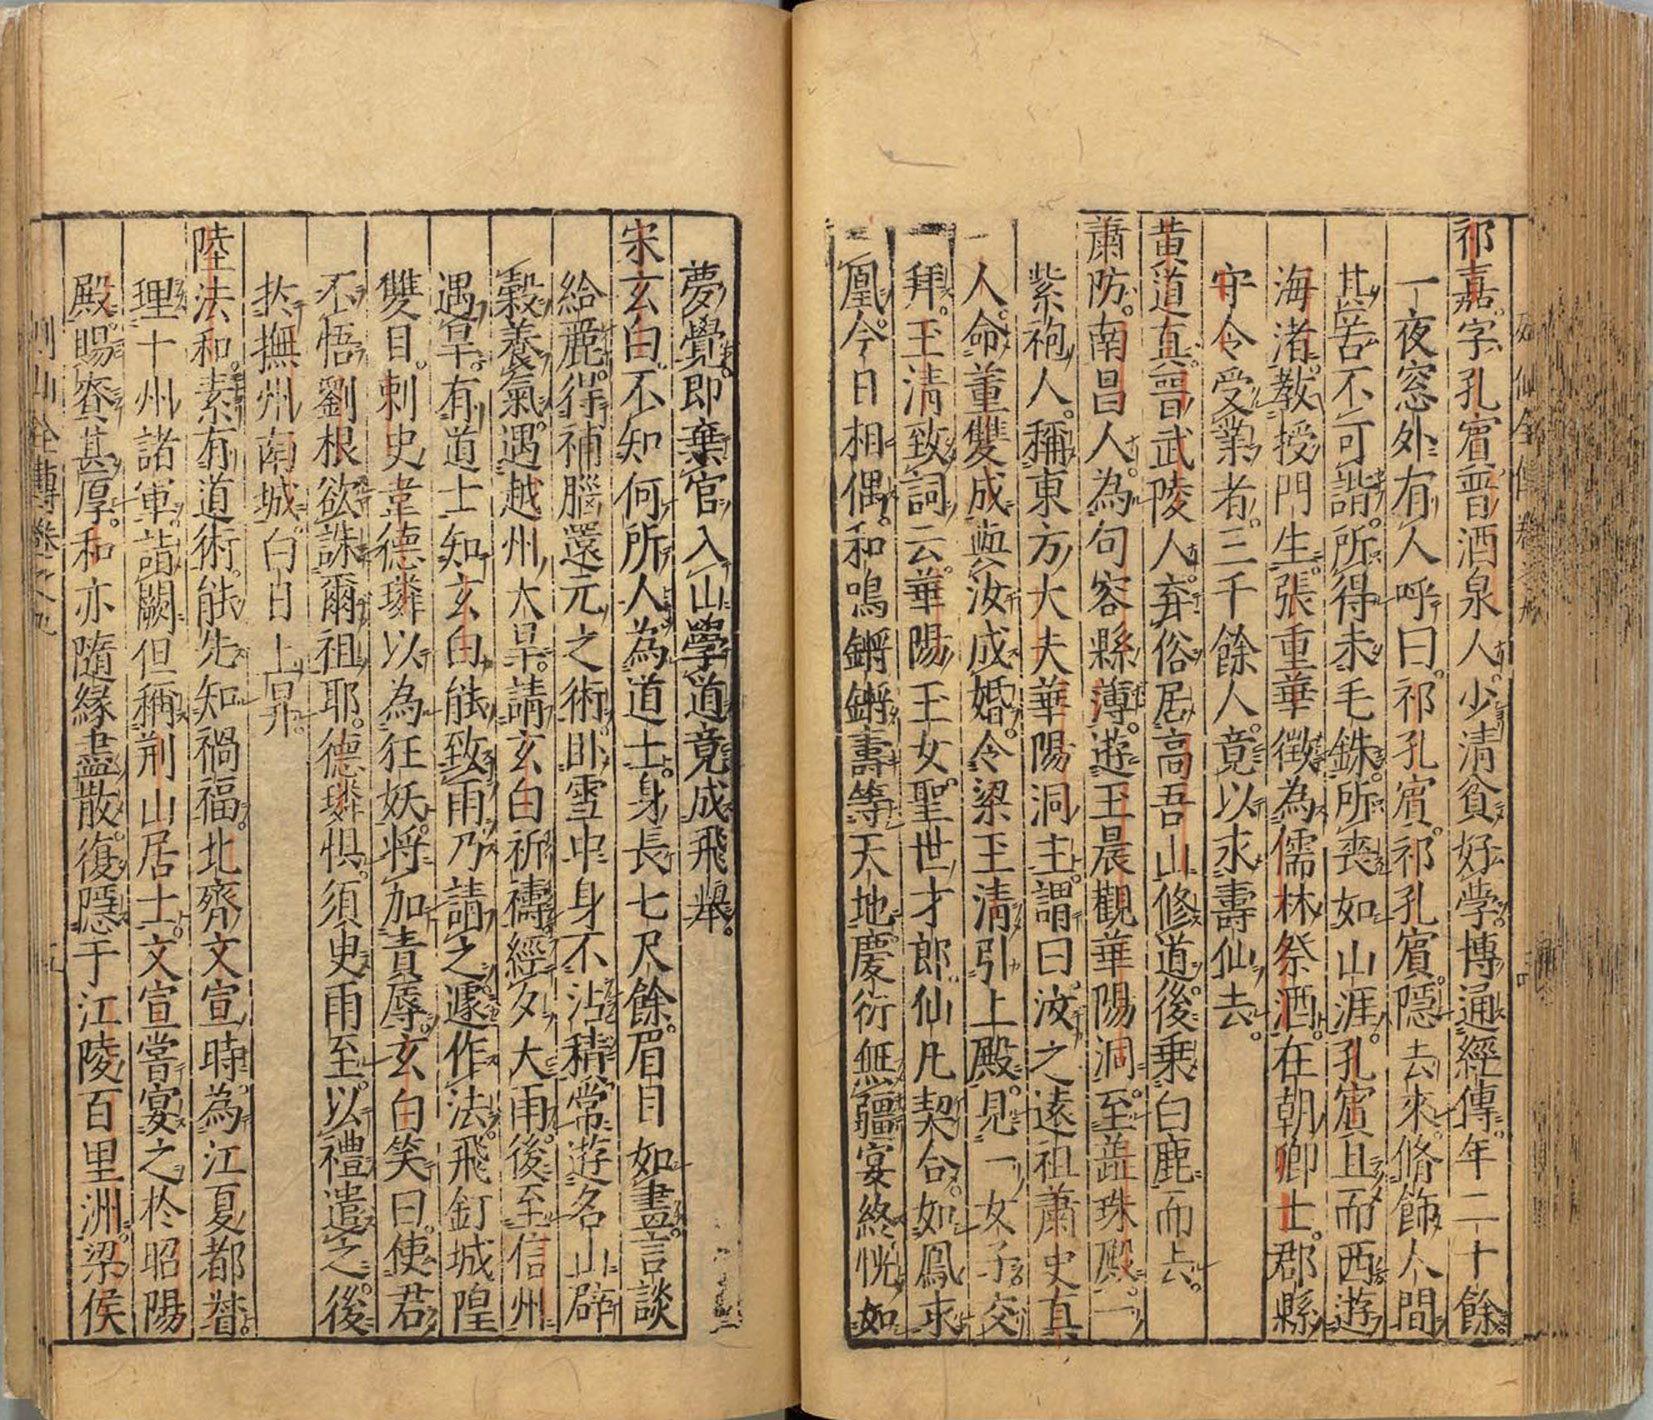 祁嘉。字孔賓晉酒泉人。少清貧好学。博通經傳。年二十餘。
一夜窓外有人呼曰。祁孔賓。祁孔賓。隱去來。脩飾人間
甚苦不可諧。所得未毛銖。所喪如山涯。孔賓且而西遊
海渚。教授門生。張重華徵為儒林祭酒。在朝卿士。郡縣
守令受業者。三千餘人。竟以求壽仙去。
黄道真。晋武陵人。弃俗居高吾山修道。後乗白鹿而去。
蕭防。南昌人。為句容縣薄。遊王晨觀華陽洞。至蕋珠殿。一
紫袍人。稱東方大夫華陽洞主。謂曰。汝之遠祖蕭史真
人。命董雙成與汝成婚。令梁玉清引上殿。見一女子交
拜。玉清致詞云。華陽玉女。聖世才郎。仙凡契合。如鳳求
凰。今日相偶。和鳴鏘鏘。壽等天地慶衍無疆宴終。恍如
夢覺。即棄官入山學道。竟成飛舉。
宋玄白。不知何所人為道士。身長七尺餘。眉目如畫。言談
給麗。得補腦還元之術。臥雪中身不沾積。常遊名山。辟
穀養氣。遇越州大旱。請玄白祈禱。經夕大雨。後至信州
遇旱。有道士知玄白能致雨。乃請之。遽作法。飛釘城隍
雙目。刺史韋德璘以為狂妖。将加責辱。玄白笑曰。使君
不悟劉根欲誅爾祖耶。德璘惧。須臾雨至。以禮遣之。後
扵撫州南城。白日上昇。
陸法和。素有道術。能先知禍福。北齊文宣時。為江夏都督。
理十州諸軍。詣闕但稱荊山居士。文宣嘗宴之於昭陽
殿。賜賚甚厚。和亦隨緣盡散。復隱于江陵百里洲。梁侯
列仙全傳卷之九